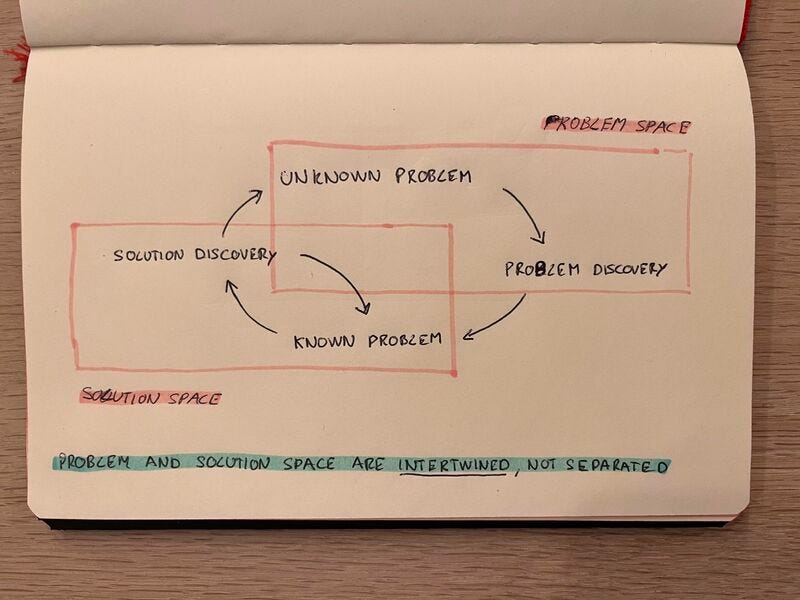 PROBLEM SPACE
UNKNOWN PROBLEM
SOLUTION DISCOVERY
PROBLEM DISCOVERY
KNOWN PROBLEM
SOLUTION SPACE
PROBLEM AND SOLUTION SPACE ARE INTERTWINED, NOT SEPARATED